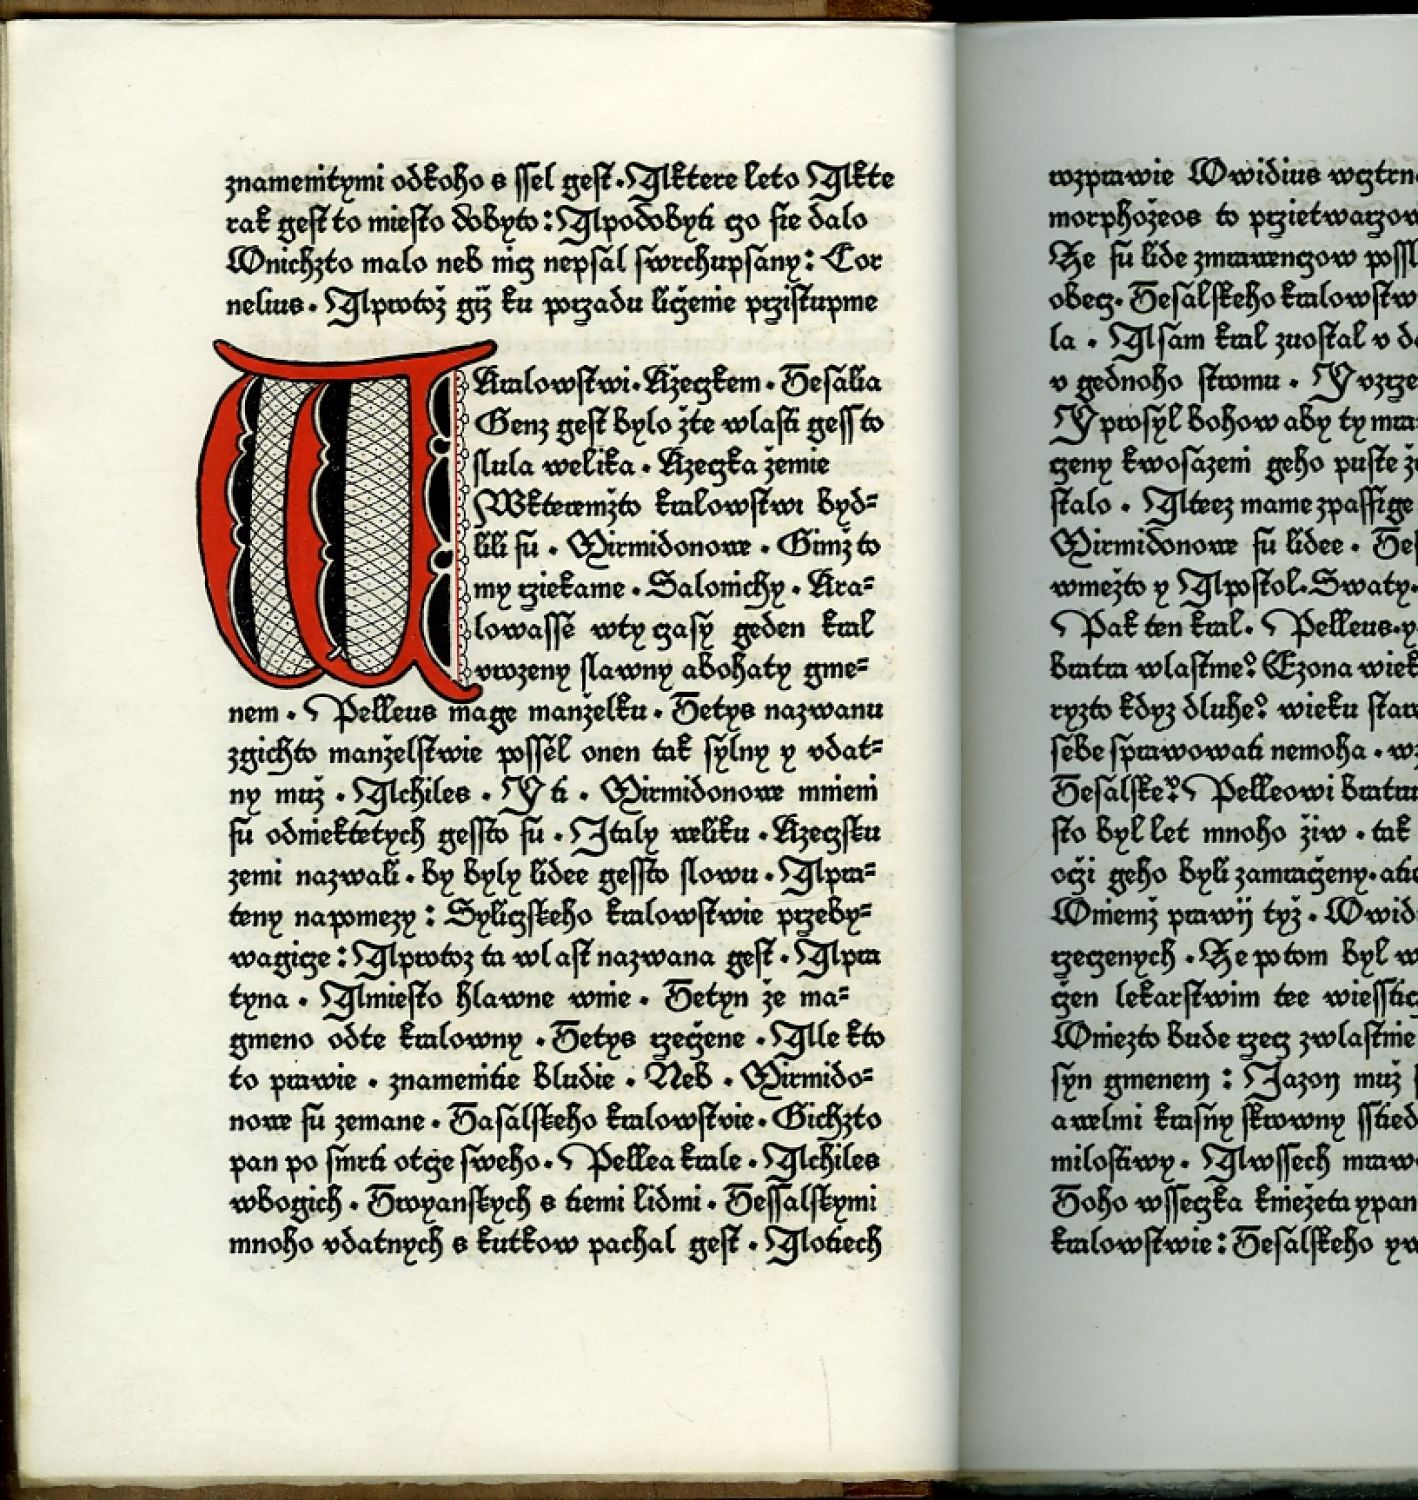 znamenitymi odkoho s ssel gest · Aktere leto Akte
rak gest to miesto dobyto : Apodobyti czo sie dalo
Onichzto malo neb nicz nepsal swrchupsany : Cor
nelius · Aprotož giž ku porzadu ličzenie przistupme
W
Kralowstwi · Rzeczkem · Tesalia
Genz gest bylo žte wlasti gess to
slula welika · Rzeczka žemie
Wkteremžto kralowstwi byd=
lili su · Mirmidonowe · Gimž to
my rziekame · Salonichy · Kra=
lowasse wty czasy geden kral
vrozeny slawny abohaty gme=
nem · Pelleus mage manželku · Tetys nazwanu
zgichto manželstwie possel onen tak sylny y vdat=
ny muž · Achiles · Y ti · Mirmidonowe mnieni
su odniekterych gessto su · Italy weliku · Rzeczsku
zemi nazwali · by byly lidee gessto slowu · Apra=
teny napomezy : Syliczskeho kralowstwie przeby=
wagicze : Aprotoz ta wlast nazwana gest · Apra
tyna · Amiesto hlawne wnie · Tetyn že ma=
gmeno odte kralowny · Tetys rzečzene · Alle kto
to prawie · znamenitie bludie · Neb · Mirmido=
nowe su zemane · Tasalskeho kralowstvie · Gichzto
pan po smrti otcze sweho · Pellea krale · Achiles
wbogich · Troyanskych s tiemi lidmi · Tessalskymi
mnoho vdatnych s kutkow pachal gest · Aotiech
rozprawie Owidius
morphožeos to przietwarzow
Že su lide zmrawenczow
obecz · Tesalskeho kralowstw
la · Asam kral zuostal v
v gednoho stromu · Y
Y prosyl bohow aby ty
czeny kwosazeni geho puste
stalo · Ateez mame
Mirmidonowe su lidee ·
wmežto y Apostol · Swaty ·
Pak ten kral · Pelleus ·
bratra wlastme? Ezona
ryzto kdyz dluhe? wieku
sebe sprawowati nemoha ·
Tesalske? Pelleowi
sto byl let mnoho žiw · tak
očzi geho byli zamračzeny ·
Oniemž prawij tyž ·
rzeczenych · Že potom byl
čzen lekarstwim tee
Oniezto bude rzecz zwlastnie
syn gmenem : Jazon muž
awelmi krasny skrowny
milostiwy · Awssech
Toho wsseczka kniežeta
kralowstwie : Tesalskeho